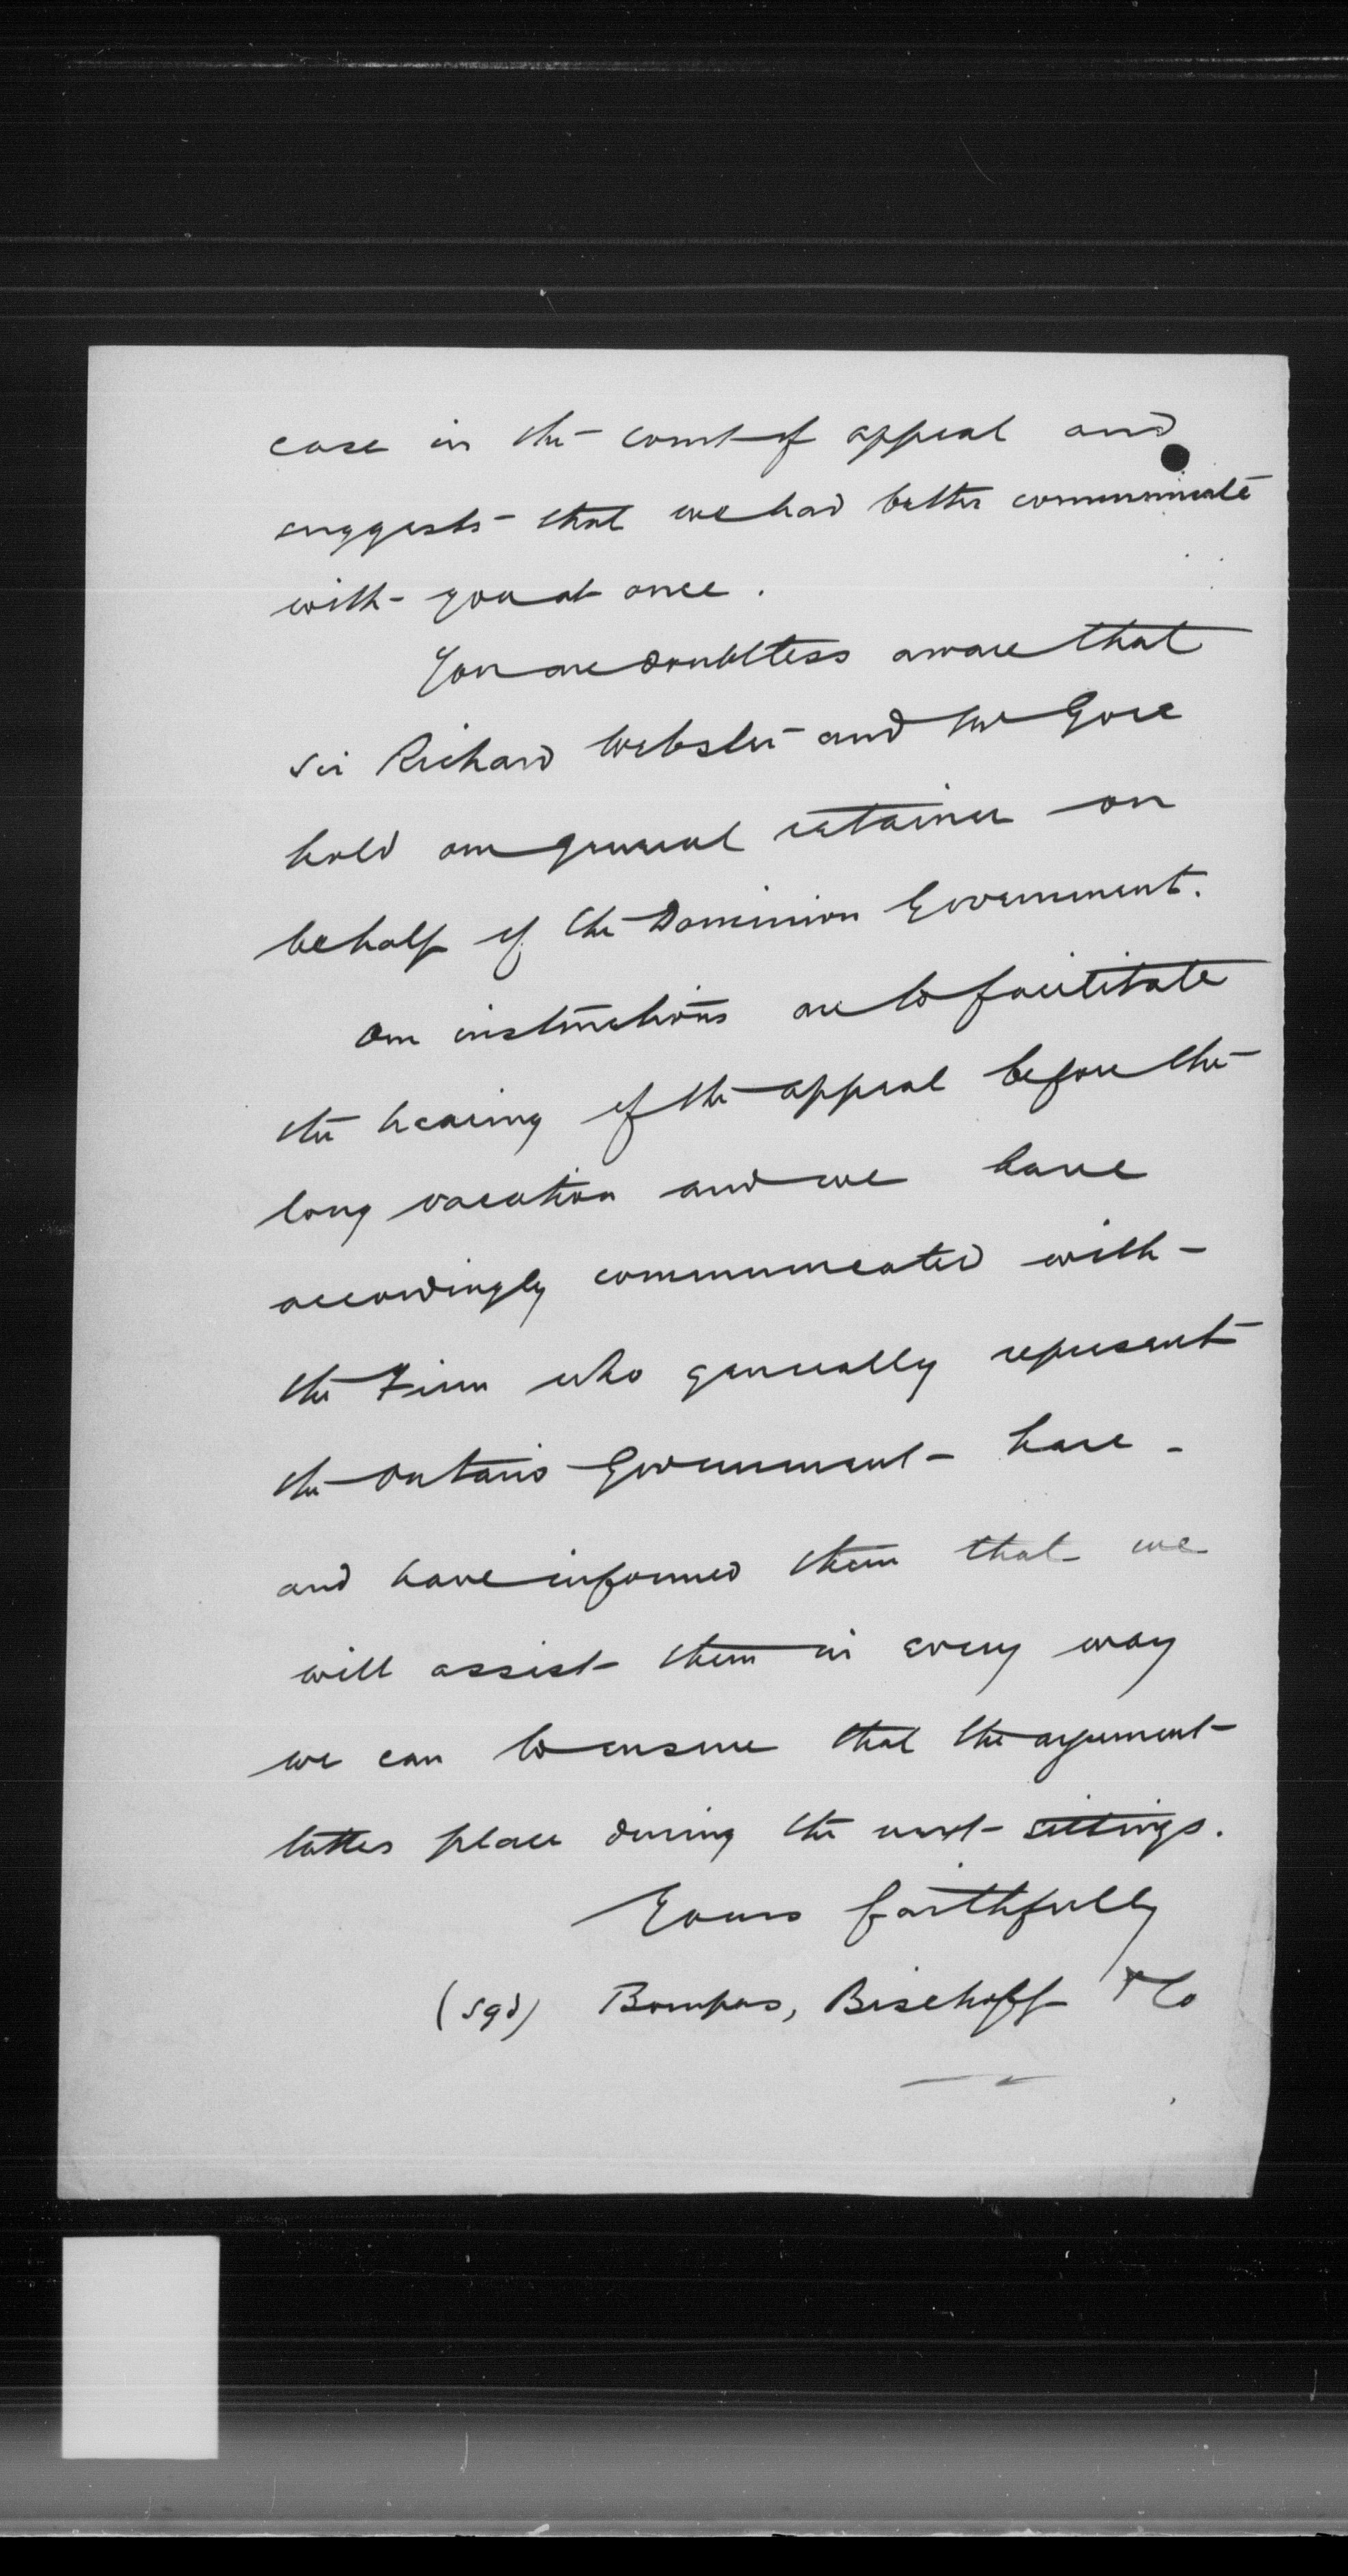 case in the court of appeal and
suggests that we had better communicate
with you at once.
You are doubtless aware that
Sir Richard Webster and Mr Gore
hold our general retainer on
behalf of the Dominion Government.
Our instructions are to facilitate
the hearing of the appeal before the
long vacation and we have
accordingly communicated with
the Firm who generally represent
the Ontario Government here -
and have informed them that we
will assist them in every way
we can to ensure that the argument
takes place during the next sittings.
Yours faithfully
(sgd) Bompas, Bischoff & Co